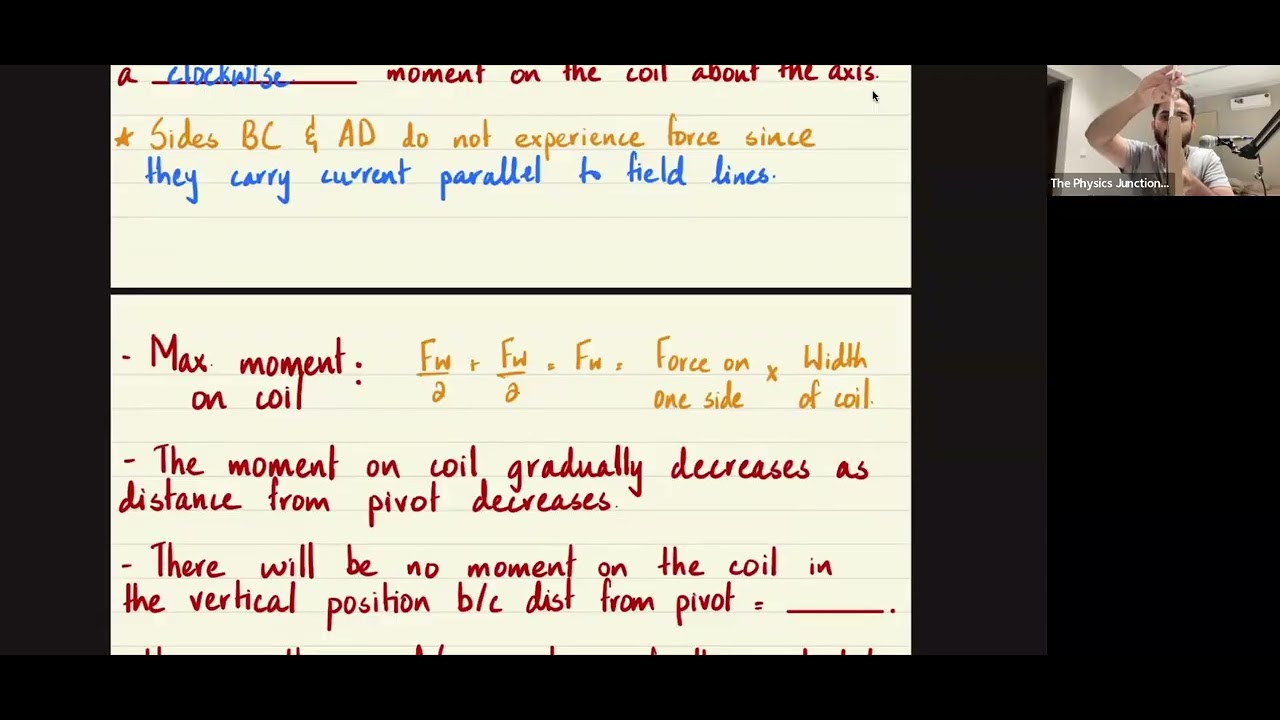 a clockwise moment on the coil about the axis.
★ Sides BC & AD do not experience force since
they carry current parallel to field lines.
The Physics Junction...
- Max. moment : Fw/2 + Fw/2 = Fw = Force on one side × Width of coil.
on coil
- The moment on coil gradually decreases as
distance from pivot decreases.
- There will be no moment on the coil in
the vertical position b/c dist from pivot = ______.